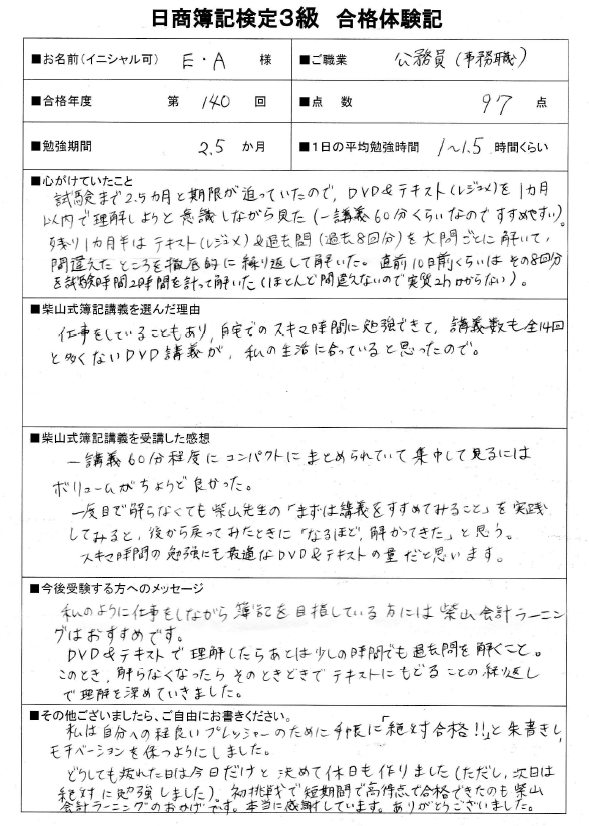 日商簿記検定3級 合格体験記
■お名前(イニシャル可) E・A 様
■ご職業 公務員(事務職)
■合格年度 第 140 回
■点 数 97 点
■勉強期間 2.5 か月
■1日の平均勉強時間 1〜1.5 時間くらい
■心がけていたこと
試験まで2.5カ月と期限が迫っていたので、DVD&テキスト(レジュメ)を1カ月
以内で理解しようと意識しながら見た(一講義60分くらいなのですすめやすい)。
残り1カ月半はテキスト(レジメ)&過去問(過去8回分)を大問ごとに解いて、
間違えたところを徹底的に繰り返して解いた。直前10日前くらいはその8回分
を試験時間2時間を計って解いた(ほとんど間違えないので実質2hかからない)。
■柴山式簿記講義を選んだ理由
仕事をしていることもあり、自宅でのスキマ時間に勉強できて、講義数も全14回
と多くないDVD講義が、私の生活に合っていると思ったので。
■柴山式簿記講義を受講した感想
一講義60分程度にコンパクトにまとめられていて集中して見るには
ボリュームがちょうど良かった。
一度目で解らなくても柴山先生の「まずは講義をすすめてみること」を実践
してみると、後から戻ってみたときに「なるほど、解かってきた」と思う。
スキマ時間の勉強にも最適なDVD&テキストの量だと思います。
■今後受験する方へのメッセージ
私のように仕事をしながら簿記を目指している方には柴山会計ラーニン
グはおすすめです。
DVD&テキストで理解したらあとは少しの時間でも過去問を解くこと。
このとき、解らなくなったらそのときどきでテキストにもどることの繰り返し
で理解を深めていきました。
■その他ございましたら、ご自由にお書きください。
私は自分への程良いプレッシャーのために手帳に「絶対合格!!」と朱書きし、
モチベーションを保つようにしました。
どうしても疲れた日は今日だけと決めて休日も作りました(ただし、次日は
絶対に勉強しました)。初挑戦で短期間で高得点で合格できたのも柴山
会計ラーニングのおかげです。本当に感謝しています。ありがとうございました。